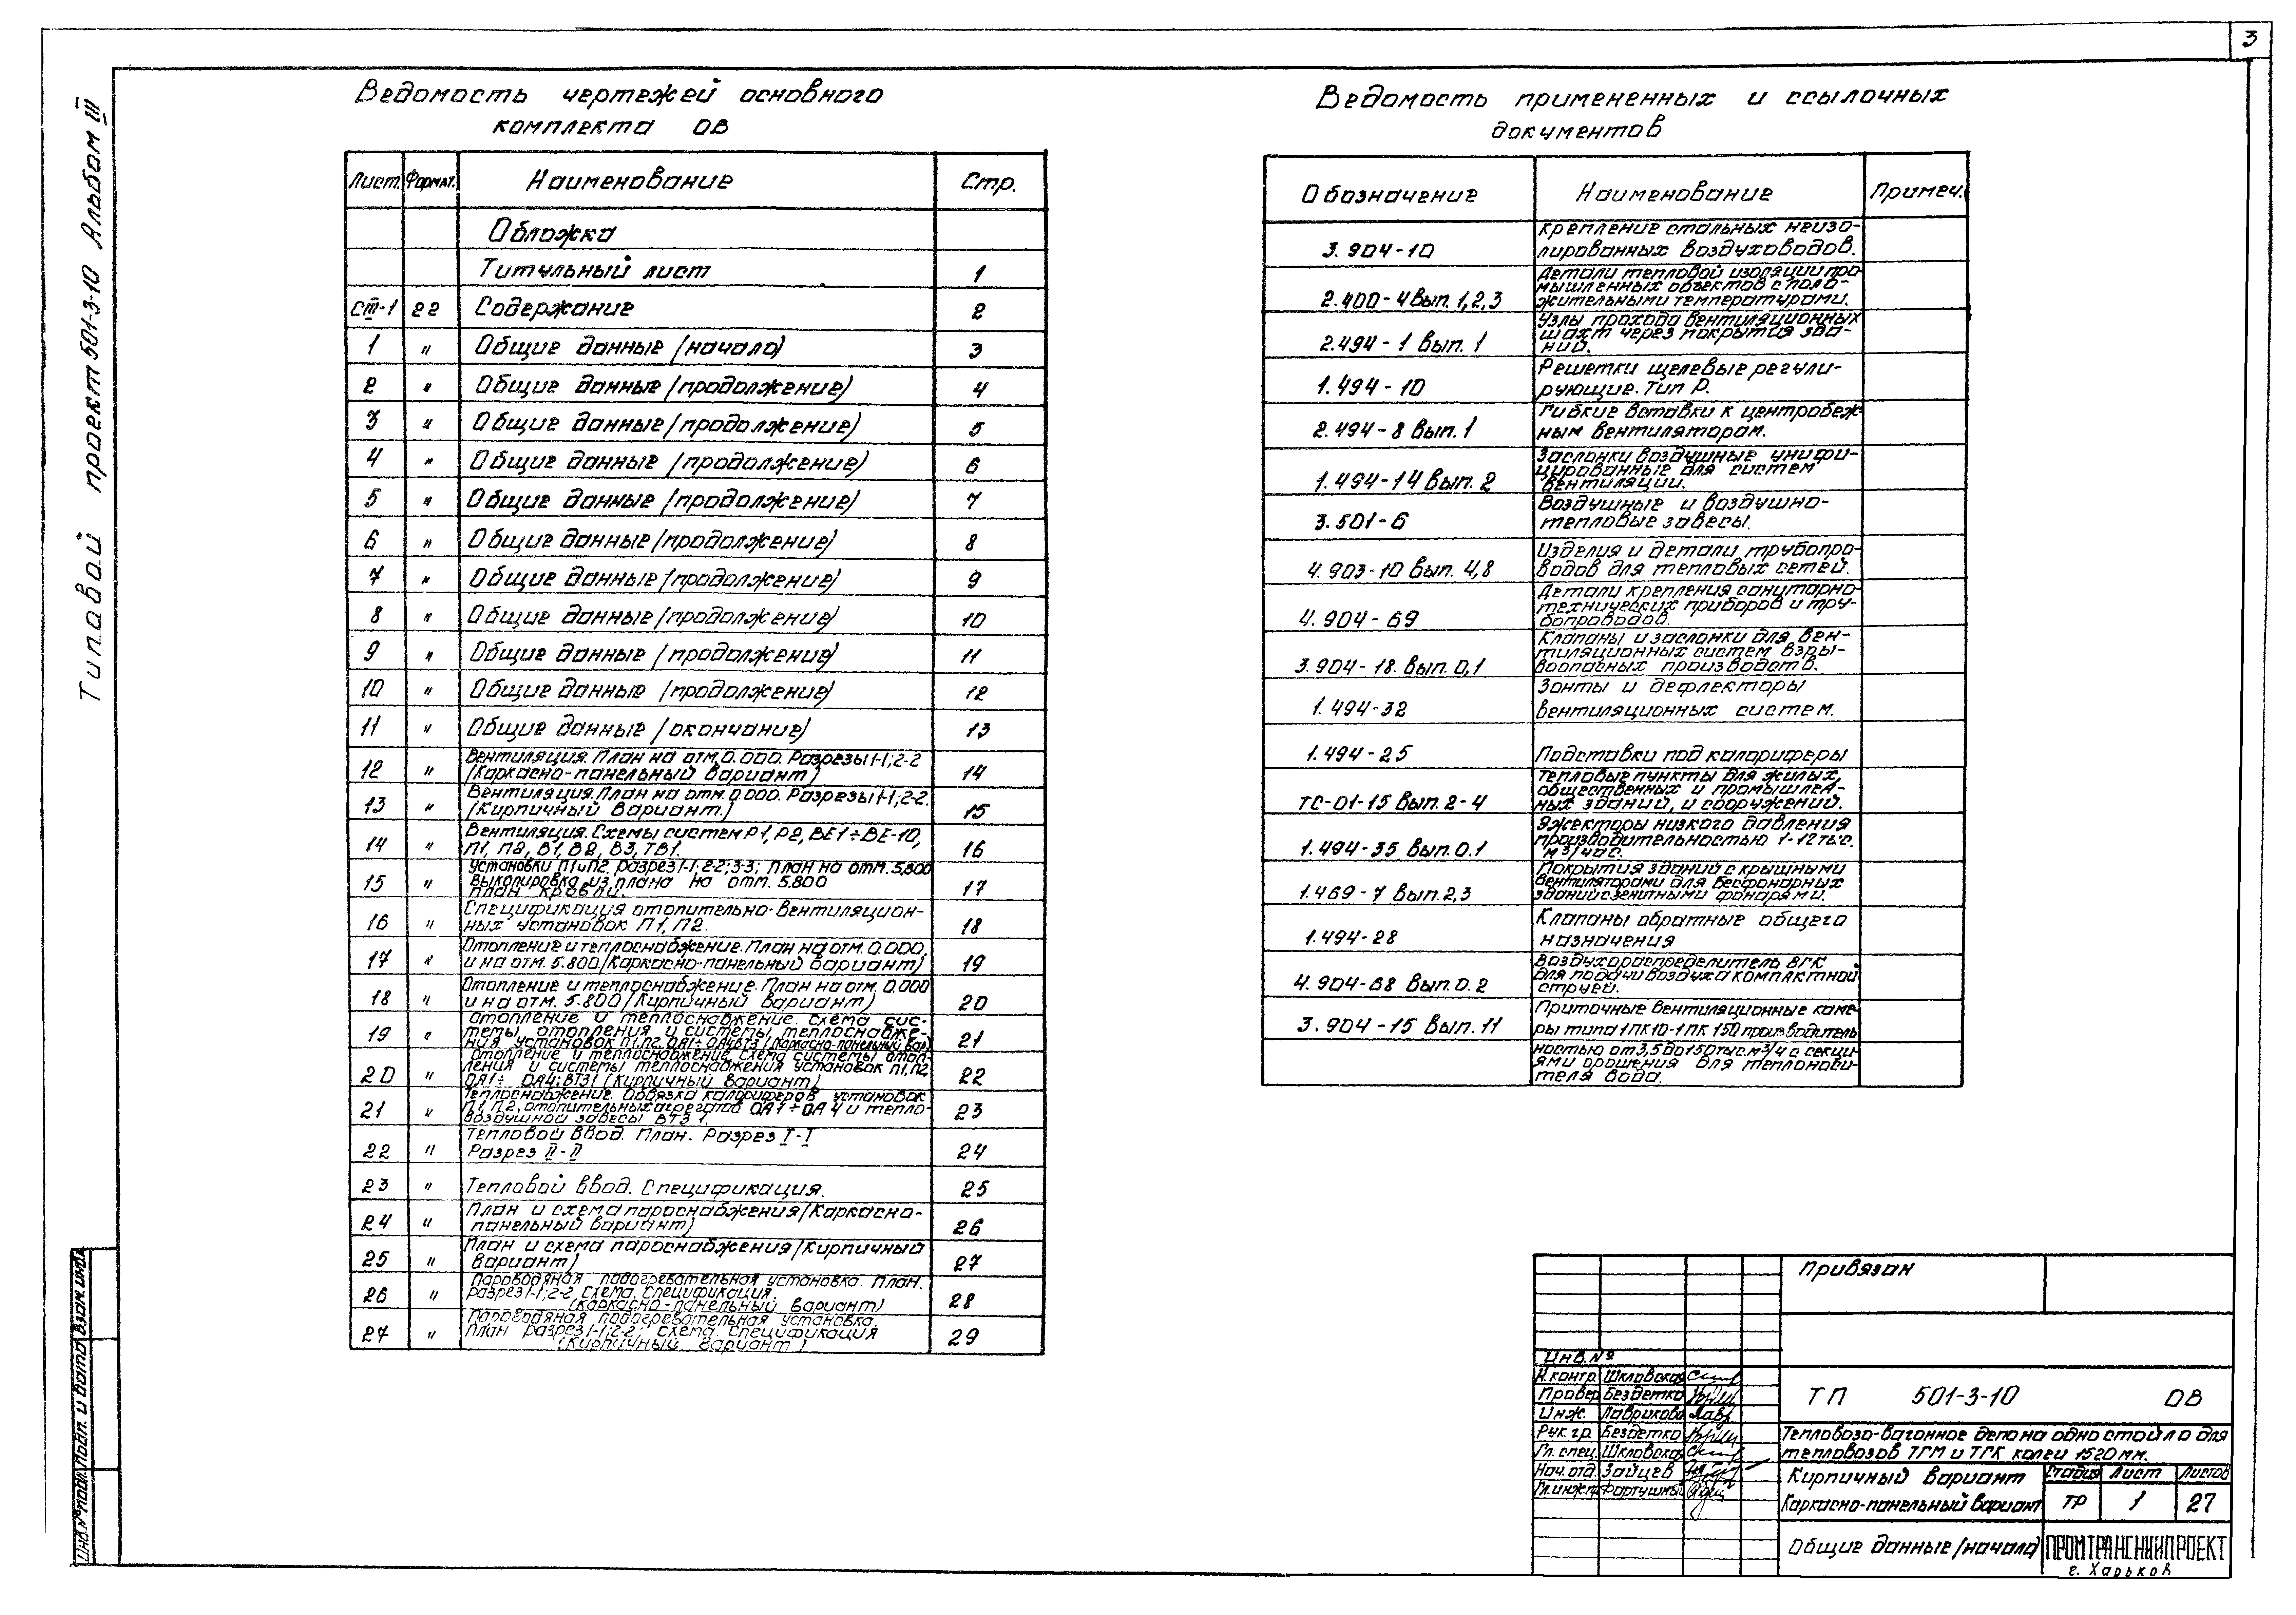 3
Типовой проект 501-3-10 Альбом III
Ведомость чертежей основного
комплекта ОВ
Лист. Формат. Наименование Стр.
Обложка
Титульный лист 1
СIII-1 22 Содержание 2
1 " Общие данные (начало) 3
2 " Общие данные (продолжение) 4
3 " Общие данные (продолжение) 5
4 " Общие данные (продолжение) 6
5 " Общие данные (продолжение) 7
6 " Общие данные (продолжение) 8
7 " Общие данные (продолжение) 9
8 " Общие данные (продолжение) 10
9 " Общие данные (продолжение) 11
10 " Общие данные (продолжение) 12
11 " Общие данные (окончание) 13
12 " Вентиляция. План на отм. 0.000. Разрезы 1-1; 2-2
(Каркасно-панельный вариант) 14
13 " Вентиляция. План на отм. 0.000. Разрезы 1-1; 2-2.
(Кирпичный вариант.) 15
14 " Вентиляция. Схемы систем Р1, Р2, ВЕ1÷ВЕ-10,
П1, П2, В1, В2, В3, ТВ1. 16
15 " Установки П1 и П2. разрез 1-1; 2-2; 3-3; План на отм. 5.800
Выкопировка из плана на отм. 5.800
план кровли. 17
16 " Спецификация отопительно-вентиляцион-
ных установок П1, П2. 18
17 " Отопление и теплоснабжение. План на отм. 0.000,
и на отм. 5.800 (Каркасно-панельный вариант) 19
18 " Отопление и теплоснабжение. План на отм. 0.000
и на отм. 5.800 (Кирпичный вариант) 20
19 " Отопление и теплоснабжение. Схема сис-
темы отопления и системы теплоснабже-
ния установок П1, П2. ОА1÷ОА4; ВТ31 (каркасно-панельный вар) 21
20 " Отопление и теплоснабжение. Схема системы отоп-
ления и системы теплоснабжения установок П1, П2,
ОА1÷ ОА4; ВТ31 (Кирпичный вариант) 22
21 " Теплоснабжение. Обвязка калориферов установок
П1, П2, отопительных агрегатов ОА1÷ОА4 и тепло-
воздушной завесы ВТЗ 1. 23
22 " Тепловой ввод. План. Разрез I-I
Разрез II-II 24
23 " Тепловой ввод. Спецификация. 25
24 " План и схема пароснабжения (Каркасно-
панельный вариант) 26
25 " План и схема пароснабжения (Кирпичный
вариант) 27
26 " Пароводяная подогревательная установка. План.
разрез 1-1; 2-2 Схема. Спецификация.
(каркасно-панельный вариант) 28
27 " Пароводяная подогревательная установка.
План разрез 1-1; 2-2; схема. Спецификация
(Кирпичный вариант) 29
Ведомость примененных и ссылочных
документов
Обозначение Наименование Примеч.
3.904-10 Крепление стальных неизо-
лированных воздуховодов.
2.400-4 вып. 1,2,3 Детали тепловой изоляции про
мышленных объектов с поло-
жительными температурами.
2.494-1 вып. 1 Узлы прохода вентиляционных
шахт через покрытия зда-
ний.
1.494-10 Решетки щелевые регули-
рующие. Тип Р.
2.494-8 вып. 1 Гибкие вставки к центробеж
ным вентиляторам.
1.494-14 вып. 2 Заслонки воздушные унифи-
цированные для систем
вентиляции.
3.501-6 Воздушные и воздушно-
тепловые завесы.
4.903-10 вып. 4,8 Изделия и детали трубопро-
водов для тепловых сетей.
4.904-69 Детали крепления санитарно-
технических приборов и тру-
бопроводов.
3.904-18. вып. 0,1 Клапаны и заслонки для вен-
тиляционных систем взры-
воопасных производств.
1.494-32 Зонты и дефлекторы
вентиляционных систем.
1.494-25 Подставки под калориферы
ТС-01-15 вып. 2-4 Тепловые пункты для жилых,
общественных и промышлен-
ных зданий, и сооружений.
1.494-35 вып. 0.1 Эжекторы низкого давления
производительностью 1-12 тыс.
м³/час.
1.469-7 вып. 2,3 Покрытия зданий с крышными
вентиляторами для бесфонарных
зданий с зенитными фонарями.
1.494-28 Клапаны обратные общего
назначения
4.904-68 вып. 0.2 Воздухораспределитель ВГК
для подачи воздуха компактной
струей.
3.904-15 вып. 11 Приточные вентиляционные каме
ры типа 1ПК10-1ПК 150 производитель
ностью от 3,5 до 150 тыс. м³/ч с секци
ями орошения для теплоноси-
теля вода.
Привязан
Инв. №
Н. контр. Шкловская
Провер. Бездетко
Инж. Лаврикова
Рук. гр. Бездетко
Гл. спец. Шкловская
Нач. отд. Зайцев
Гл. инж. пр. Фартушный
ТП 501-3-10 ОВ
Тепловозо-вагонное депо на одно стойло для
тепловозов ТГМ и ТГК колеи 1520 мм.
Кирпичный вариант
Каркасно-панельный вариант
Стадия Лист Листов
ТР 1 27
Общие данные (начало)
ПРОМТРАНСНИИПРОЕКТ
г. Харьков
Инв. № подл. Подп. и дата Взам. инв. №